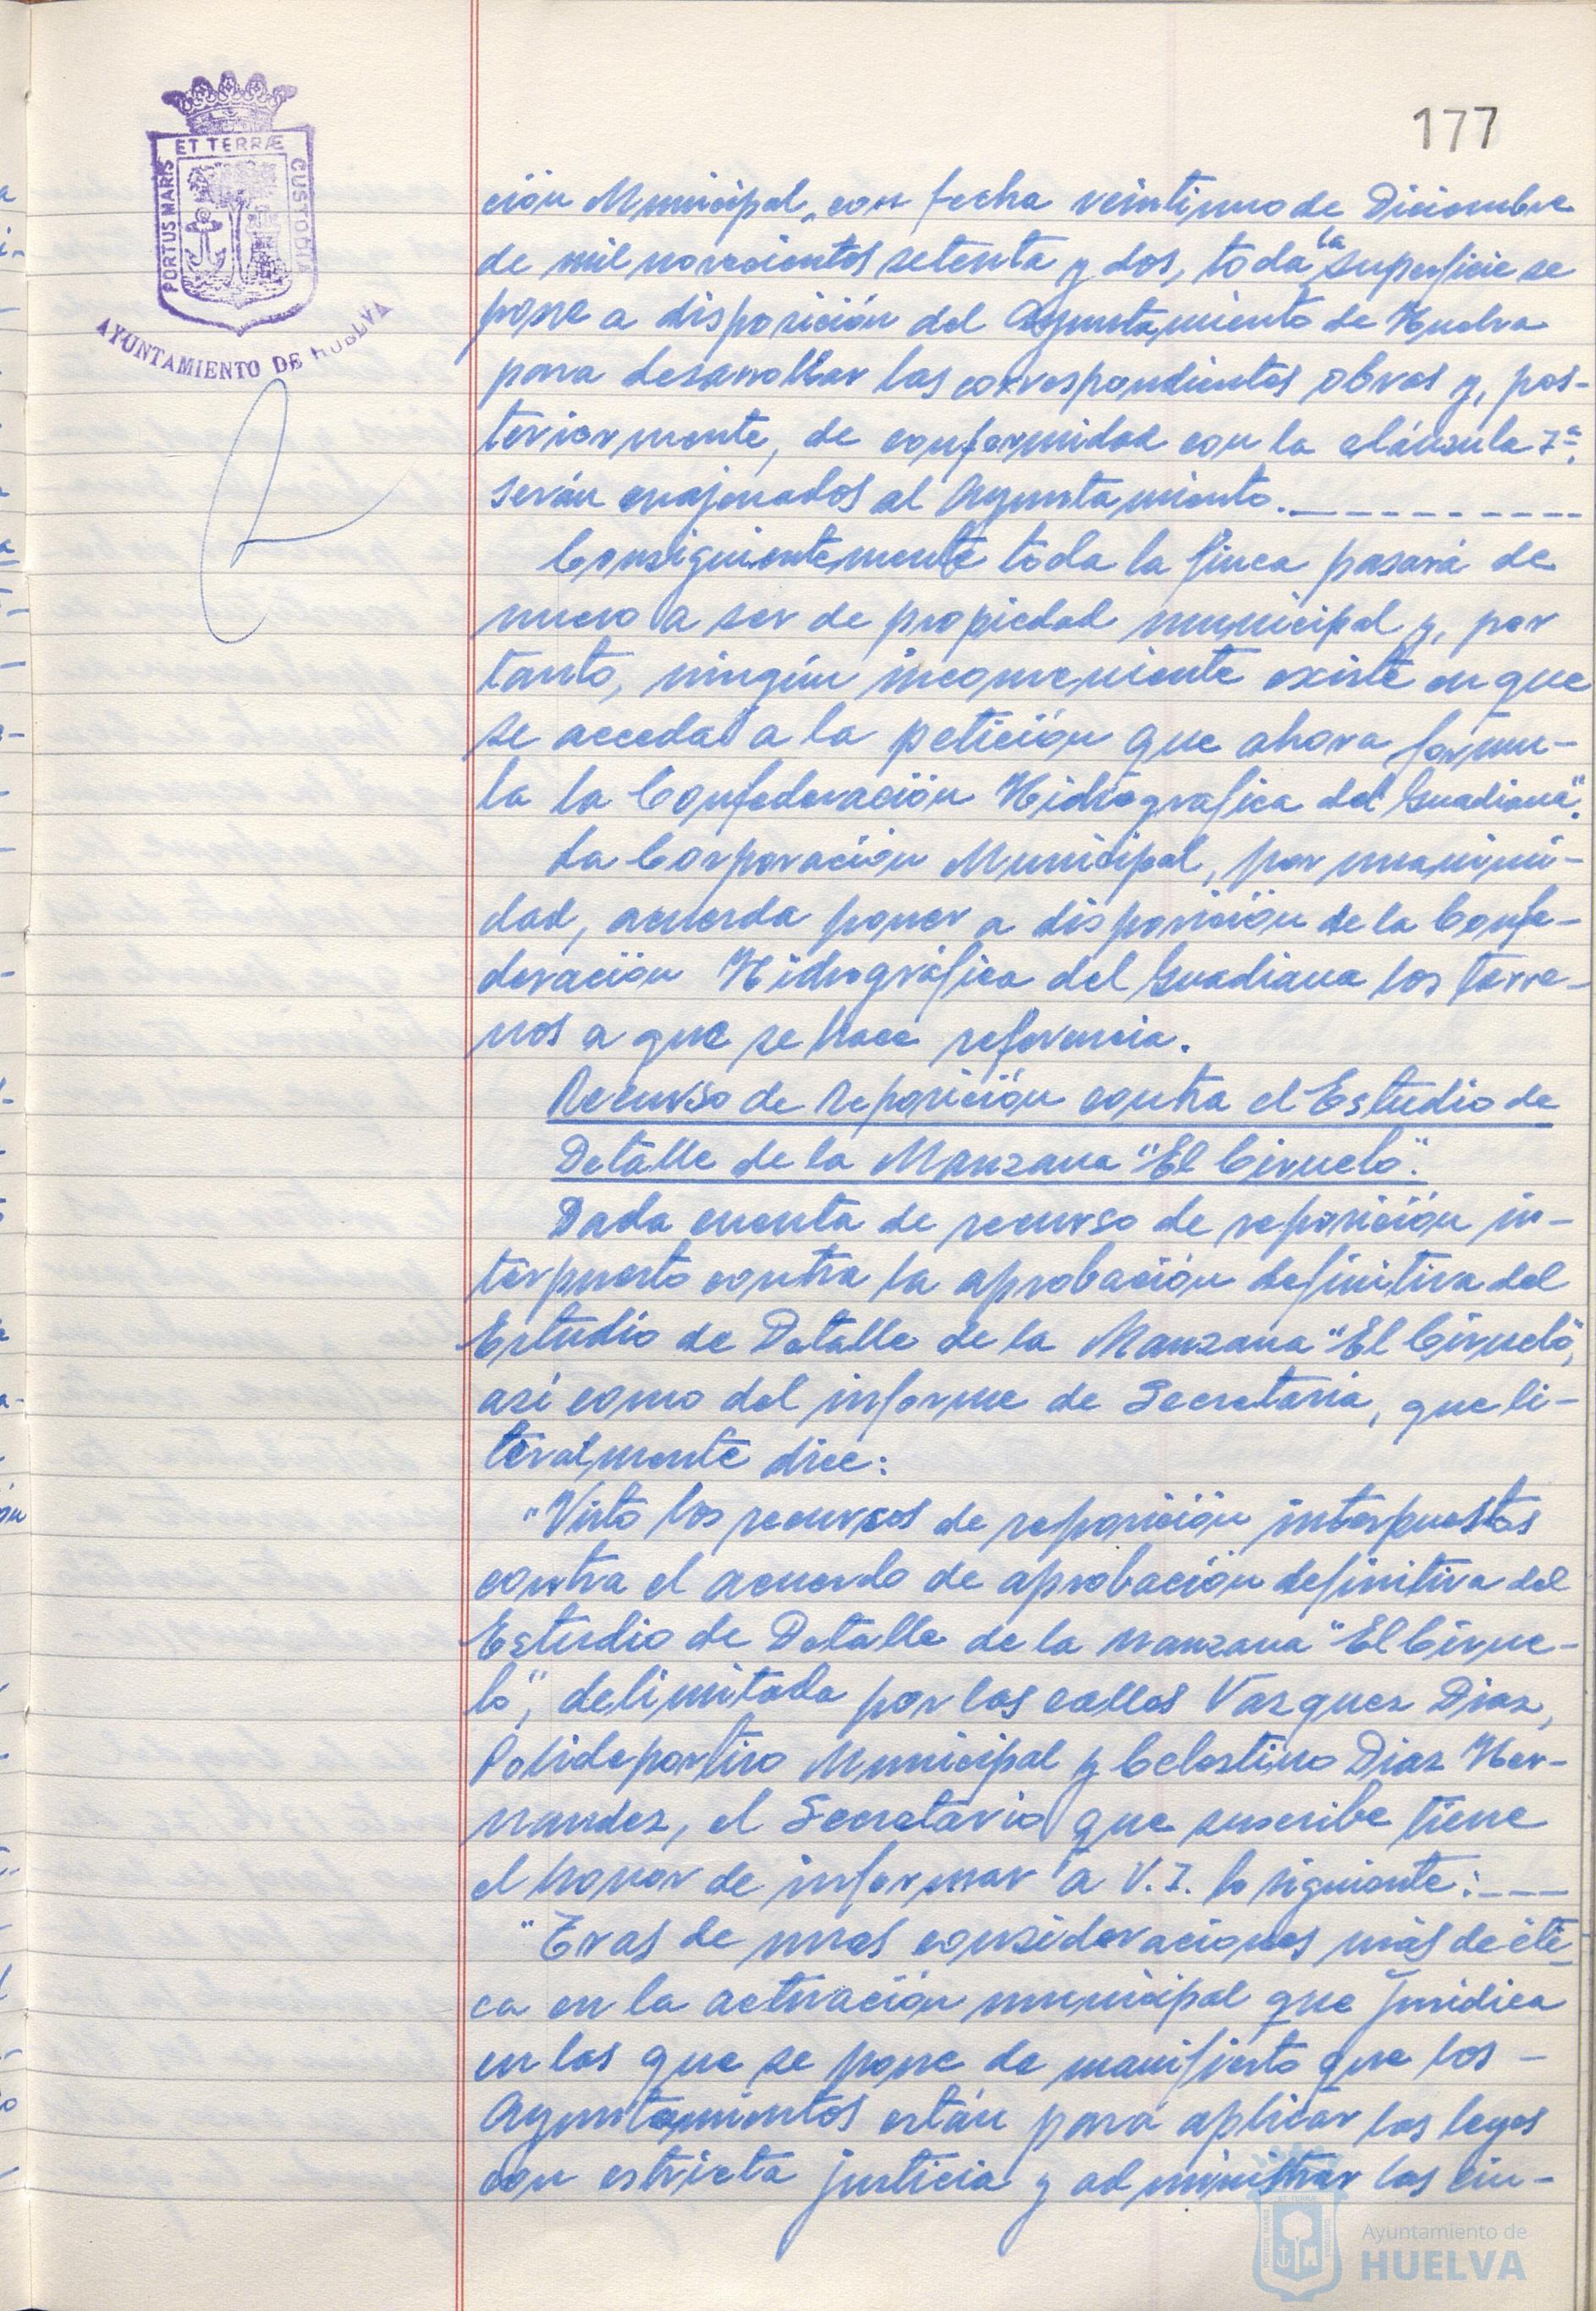 177
PORTUS MARIS ET TERRÆ CUSTODIA
AYUNTAMIENTO DE HUELVA
ción Municipal, con fecha veintiuno de Diciembre
de mil novecientos setenta y dos, toda la superficie se
pone a disposición del Ayuntamiento de Huelva
para desarrollar las correspondientes obras y, pos-
teriormente, de conformidad con la cláusula 7ª.
serán enajenados al Ayuntamiento.
Consiguientemente toda la finca pasará de
nuevo a ser de propiedad municipal y, por
tanto, ningún inconveniente existe en que
se acceda a la petición que ahora formu-
la la Confederación Hidrográfica del Guadiana".
La Corporación Municipal, por unanimi-
dad, acuerda poner a disposición de la Confe-
deración Hidrográfica del Guadiana los terre-
nos a que se hace referencia.
Recurso de reposición contra el Estudio de
Detalle de la Manzana "El Ciruelo".
Dada cuenta de recurso de reposición in-
terpuesto contra la aprobación definitiva del
Estudio de Detalle de la Manzana "El Ciruelo",
así como del informe de Secretaría, que li-
teralmente dice:
"Visto los recursos de reposición interpuestos
contra el acuerdo de aprobación definitiva del
Estudio de Detalle de la manzana "El Cirue-
lo", delimitada por las calles Vazquez Diaz,
Polideportivo Municipal y Celestino Diaz Her-
nandez, el Secretario que suscribe tiene
el honor de informar a V.I. lo siguiente:
"Tras de unas consideraciones más de éti-
ca en la actuación municipal que jurídica
en las que se pone de manifiesto que los -
Ayuntamientos están para aplicar las leyes
con estricta justicia y administrar las ciu-
Ayuntamiento de
HUELVA